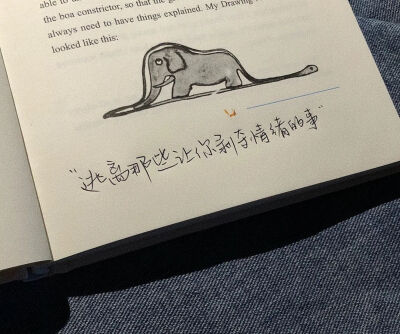 able to
the boa constrictor, so that the
always need to have things explained. My Drawing
looked like this:
"逃离那些让你剥夺情绪的事"